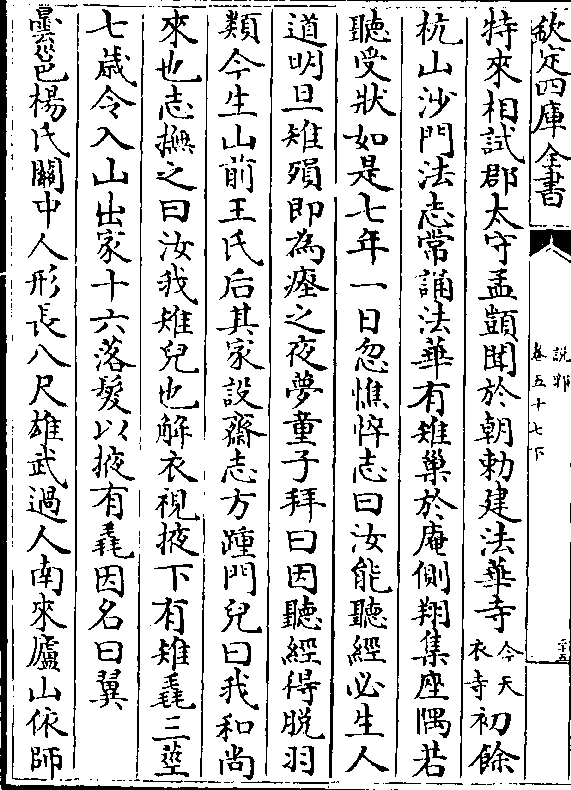 欽定四庫全書
說郛
卷五十七下
特來相試郡太守孟顗聞於朝勅建法華寺今天衣寺初餘
杭山沙門法志常誦法華有雉巢於庵側翔集座隅若
聽受狀如是七年一日忽憔悴志曰汝能聽經必生人
道明旦雉殞即為瘞之夜夢童子拜曰因聽經得脫羽
類今生山前王氏后其家設齋志方踵門兒曰我和尚
來也志撫之曰汝我雉兒也解衣視掖下有雉毳三莖
七歲令入山出家十六落髮以掖有毳因名曰翼
曇邕楊氏關中人形長八尺雄武過人南來廬山依師